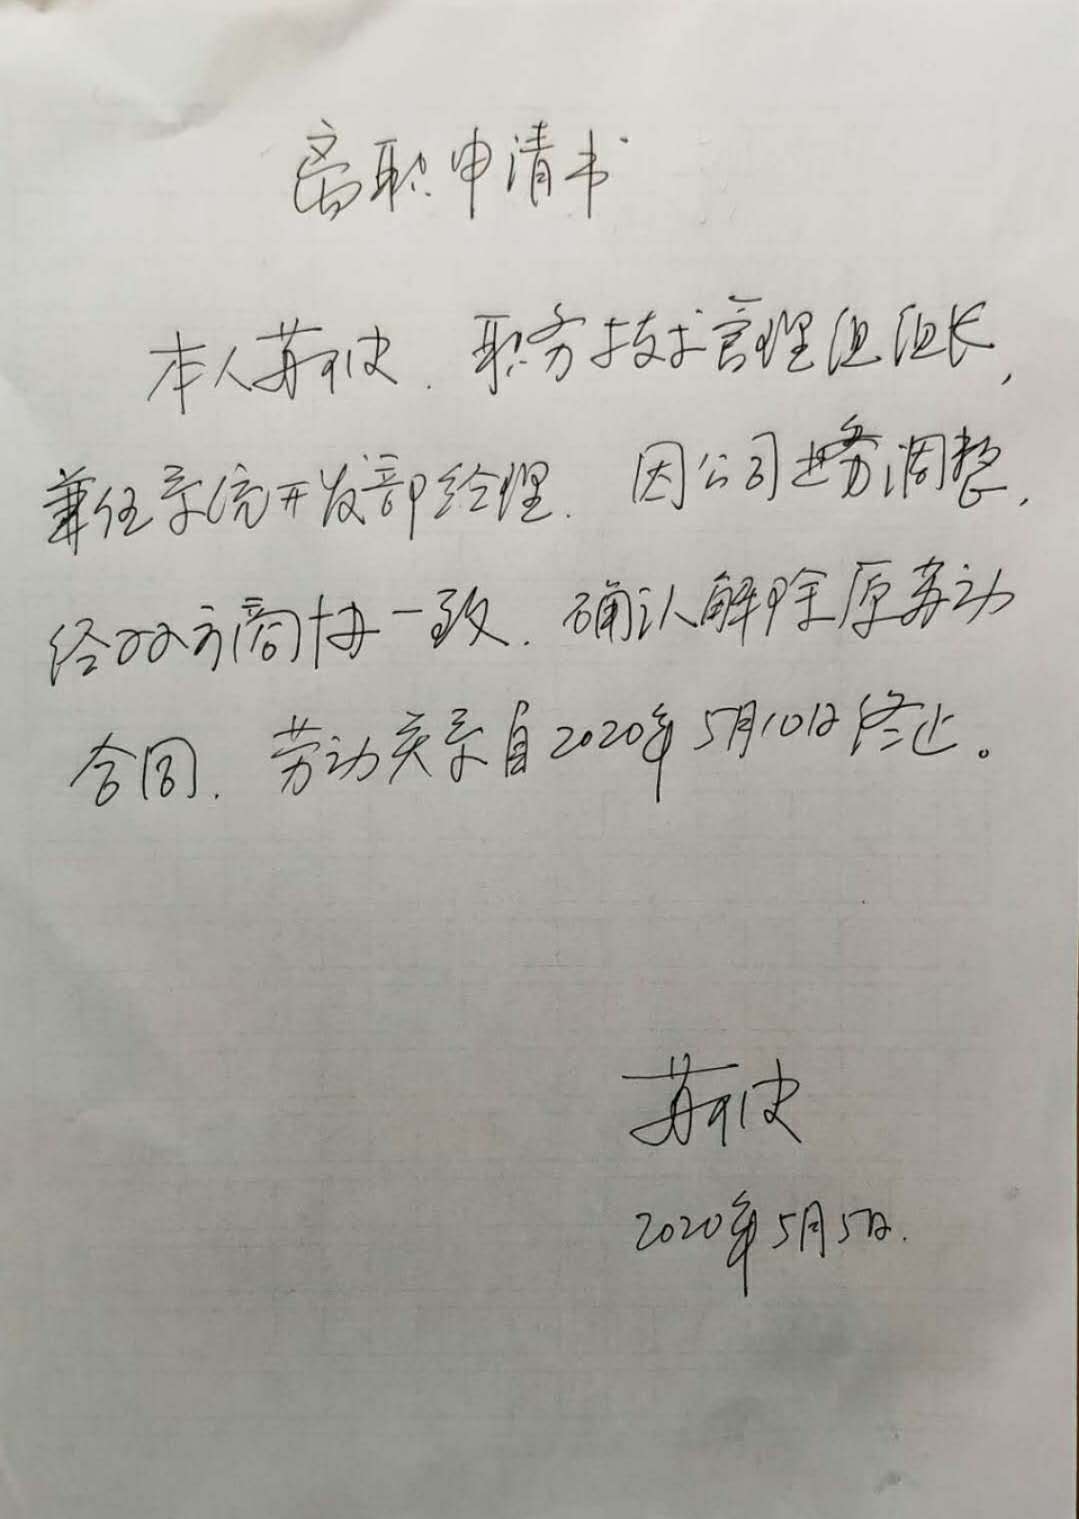 离职申请书
本人苏, 职务技术管理组组长,
兼任系统开发部经理. 因公司业务调整,
经双方商协一致. 确认解除原劳动
合同. 劳动关系自2020年5月10日终止。
苏
2020年5月5日.